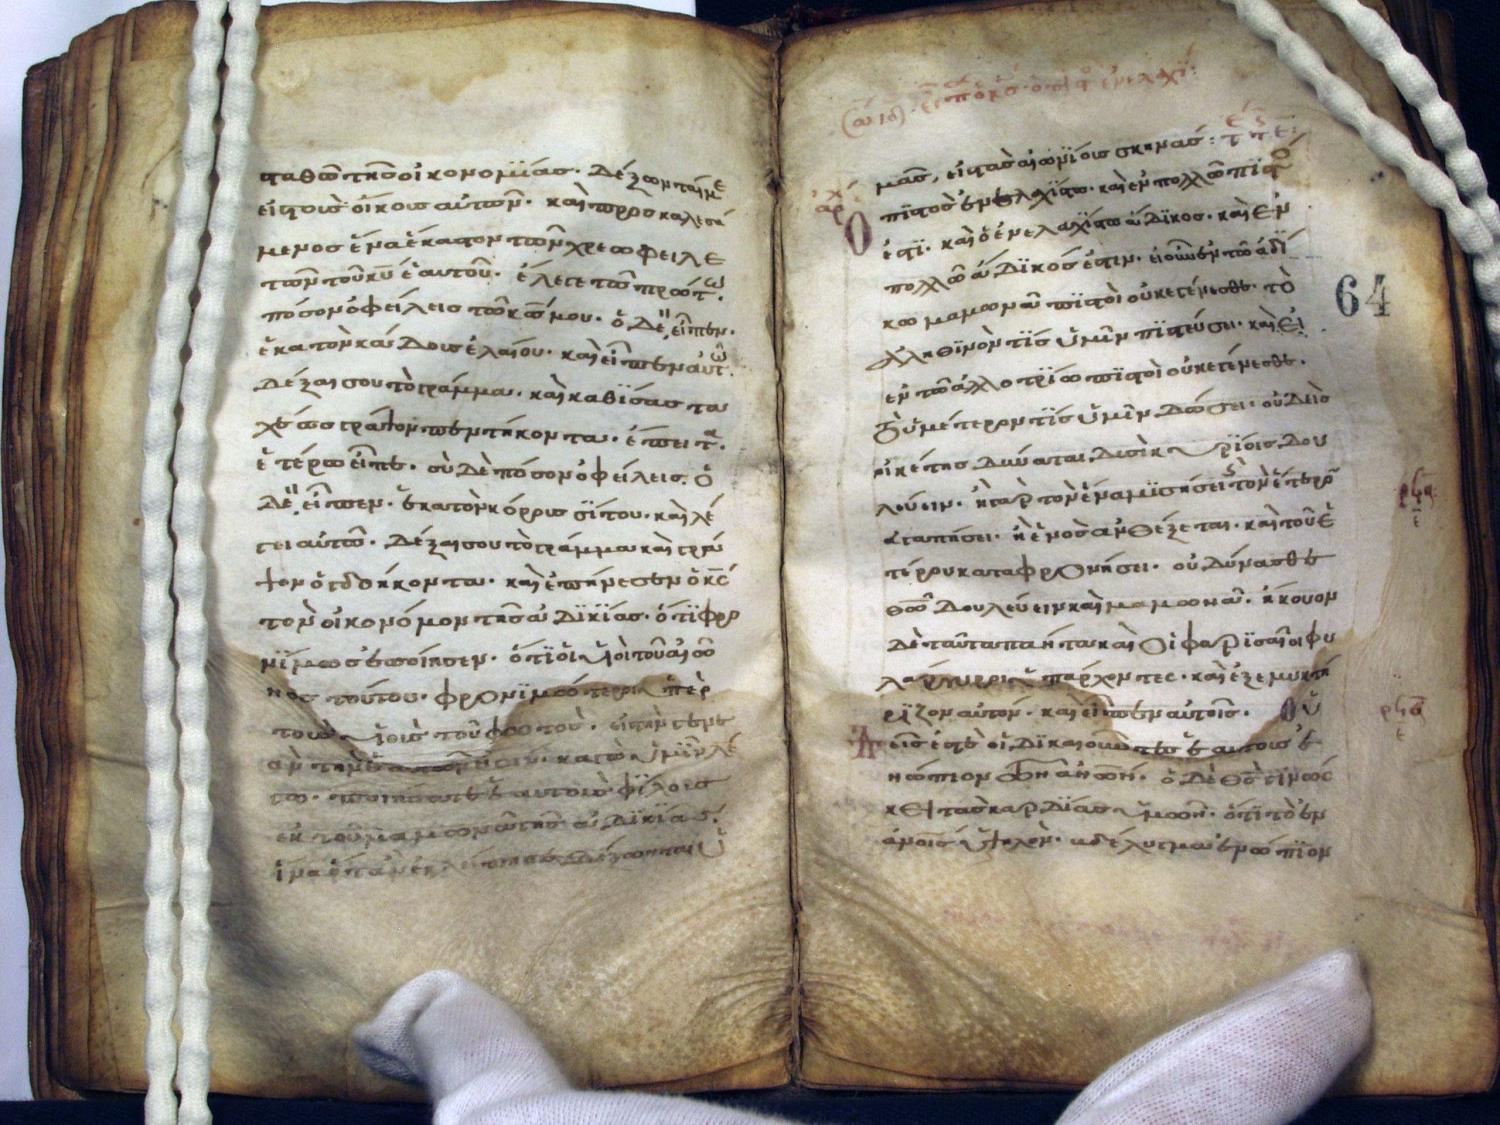 σταθῶ τῆς οἰκονομΐας· δέξωνται με
εἰς τοὺς οἴκους αὐτῶν· καὶ προσκαλεσά
μενος ἕνα ἕκαστον τῶν χρεωφειλε
τῶν τοῦ κυ ἑαυτοῦ· ἔλεγε τῶ πρώτω·
πόσον ὀφείλεις τῶ κω μου· ὁ δὲ εἶπεν·
ἑκατὸν κάδους ἐλαίου· καὶ εἶπεν αὐτῶ·
δέξαι σου τὸ γράμμα· καὶ καθΐσας τα
χέως γράψον πεντήκοντα· ἔπειτα·
ἑτέρω εἶπε· σὺ δὲ πόσον ὀφείλεις· ὁ
δὲ εἶπεν· ἑκατὸν κόρους σΐτου· καὶ λέ
γει αὐτῶ· δέξαι σου τὸ γράμμα καὶ γρά
ψον ὀγδοήκοντα· καὶ ἐπήνεσεν ὁ κς
τὸν οἰκονόμον τῆς ἀδΐκΐας· ὅτϊ φρο
νΐμως ἐποίησεν· ὅτϊ οἱ υἱοὶ τοῦ αἰῶ
νος τούτου· φρονϊμώτεροι ὑπὲρ
τοὺς υἱοὺς τοῦ φωτὸς· εἰς τὴν γενε
ὰν τὴν ἑαυτῶν εἰσιν· καγὼ ὑμῖν λέ
γω· ποιήσατε ἑαυτοῖς φΐλους
ἐκ τοῦ μαμωνᾶ τῆς ἀδΐκίας·
ἵνα ὅταν ἐκλείπητε δέξωνται ὑ
εἶπ ὁ κς· ὁ πιστ ἐν ἐλαχϊ:
μᾶς, εἰς τὰς αἰωνΐους σκηνάς:
Ὁ πϊστὸς ἐν ἐλαχΐστω· καὶ ἐν πολλῶ πϊστός
ἐστϊ· καὶ ὁ ἐν ἐλαχΐστω ἄδϊκος· καὶ ἐν
πολλῶ ἄδϊκός ἐστιν· εἰ οὖν ἐν τῶ ἀδΐ
κω μαμωνᾶ πϊστοὶ οὐκ ἐγένεσθε· τὸ
ἀληθϊνὸν τΐς ὑμῖν πϊστεύσει· καὶ εἰ
ἐν τῶ ἀλλοτρΐω πϊστοὶ οὐκ ἐγένεσθε·
τὸ ὑμέτερον τΐς ὑμῖν δώσει· οὐδεὶς
οἰκέτης δύναται δυσὶ κυρΐοις δου
λεύειν· ἢ γὰρ τὸν ἕνα μϊσήσει τὸν ἕτερον
ἀγαπήσει· ἢ ἑνὸς ἀνθέξεται· καὶ τοῦ ἑ
τέρου καταφρονήσει· οὐ δύνασθε
θῶ δουλεύειν καὶ μαμωνᾶ· ἤκουον
δὲ ταῦτα πάντα καὶ οἱ φαρϊσαῖοι φι
λάργυροι ὑπάρχοντες· καὶ ἐξεμυκτη
ρΐζον αὐτόν· καὶ εἶπεν αὐτοῖς· ὑ
μεῖς ἐστὲ οἱ δϊκαιοῦντες ἑαυτοὺς ἐ
νώπιον τῶν ἀνων· ὁ δὲ θς γϊνώσ
κει τὰς καρδΐας ὑμῶν· ὅτϊ τὸ ἐν
ἀνοις ὑψηλὸν· βδέλυγμα ἐνώπϊον
64